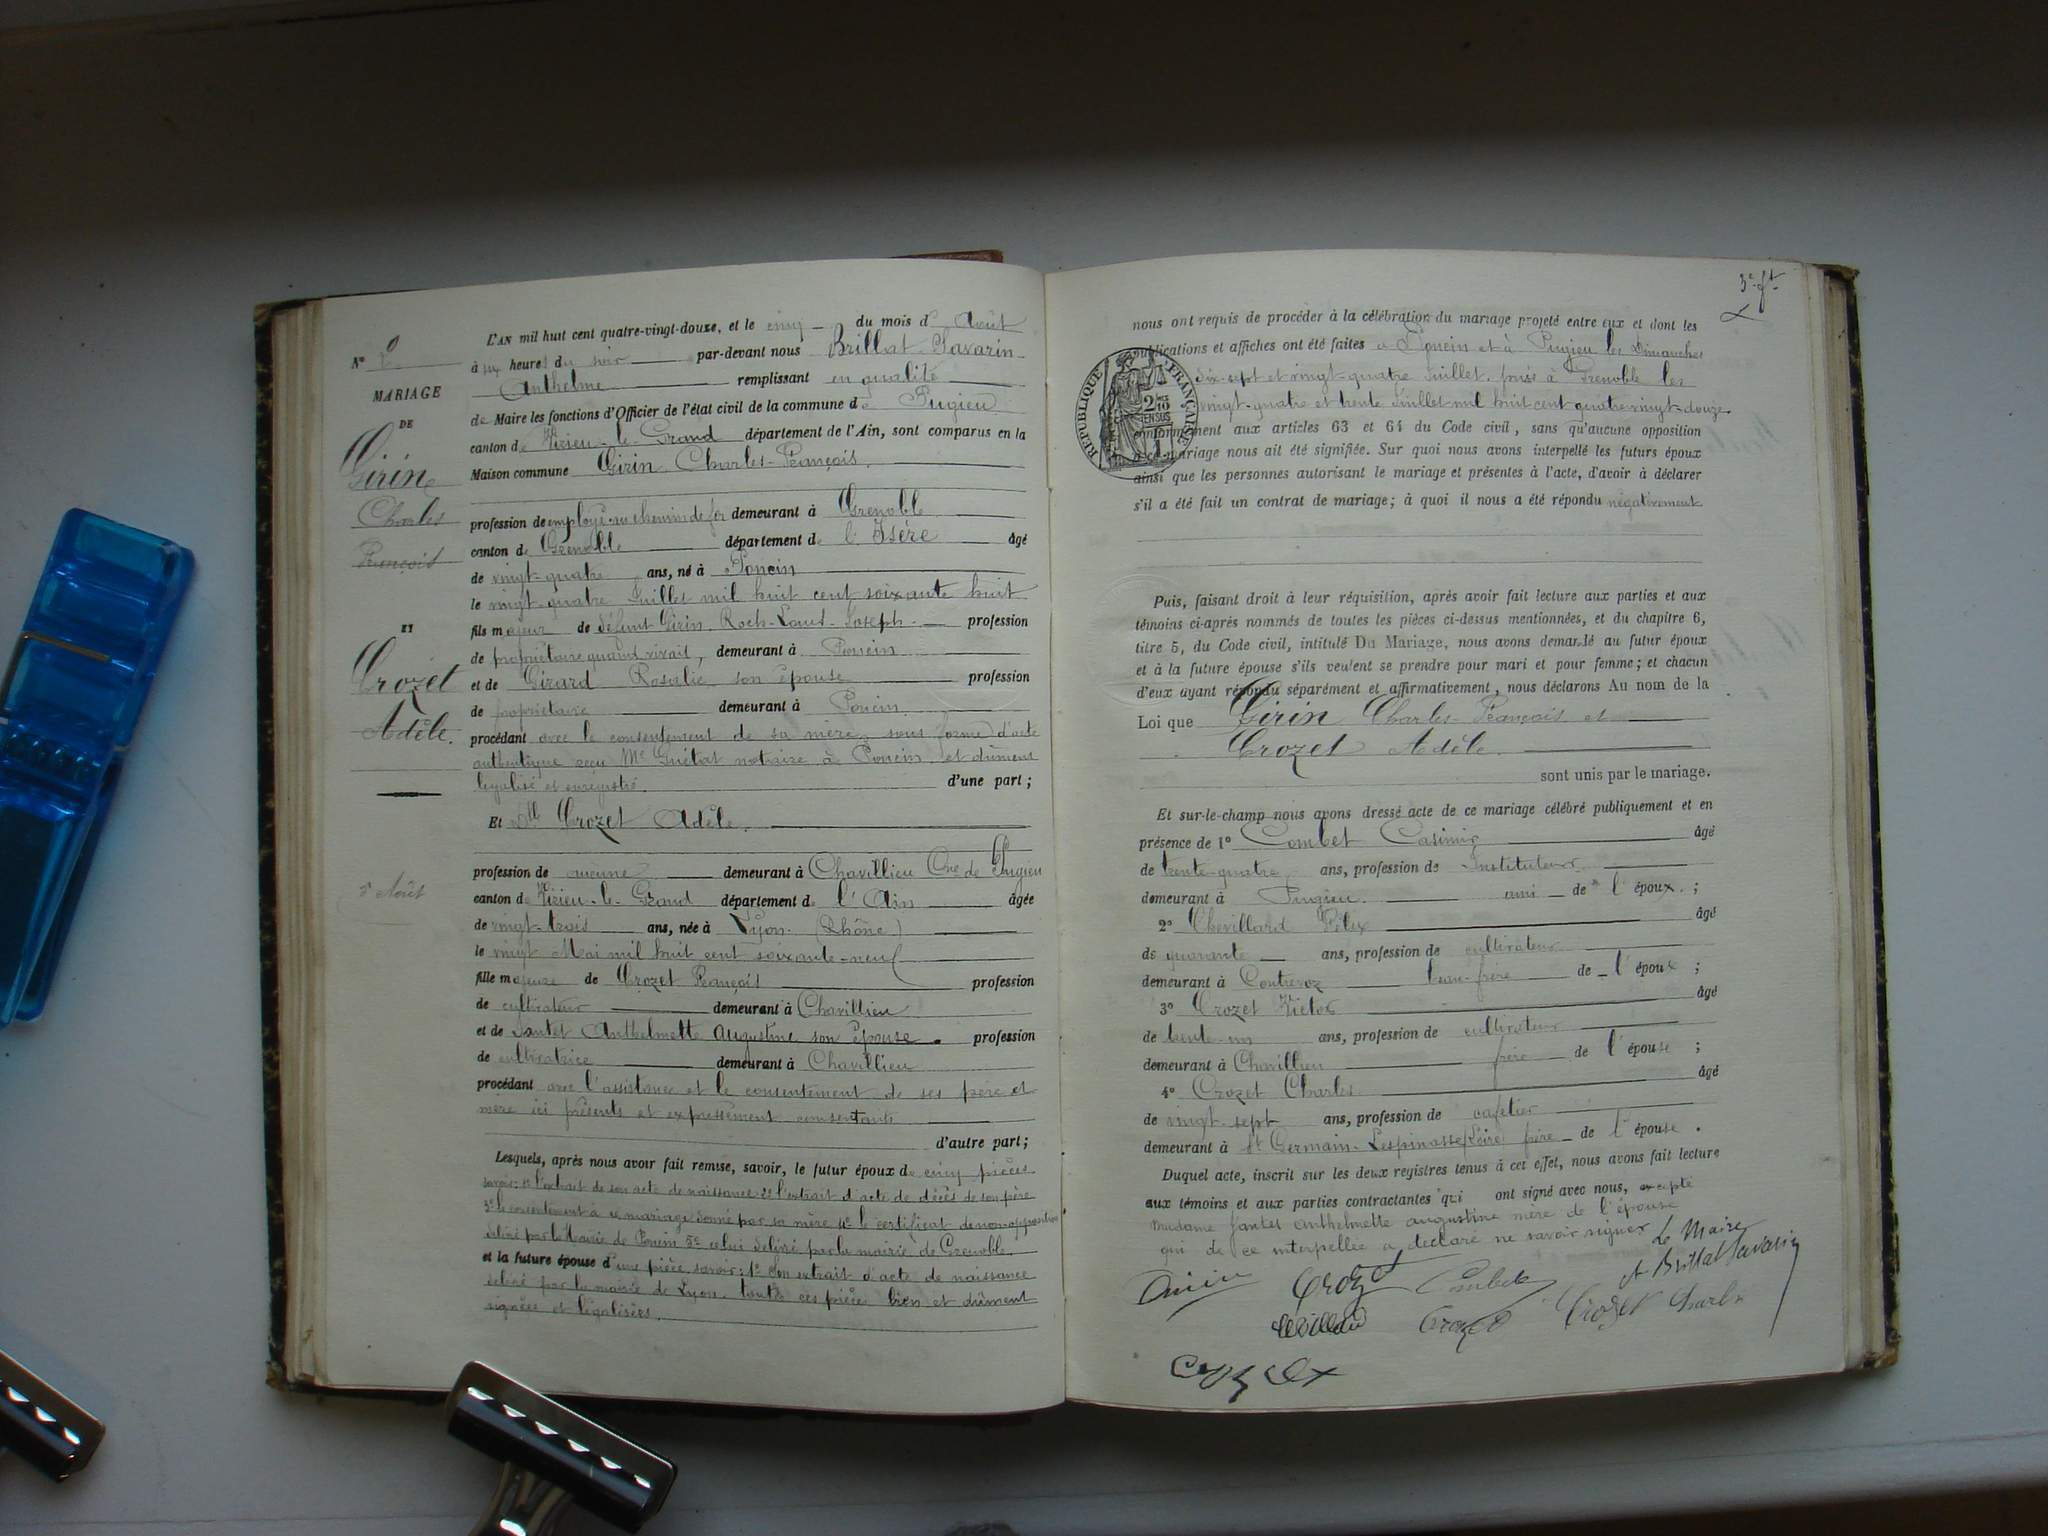 L'AN mil huit cent quatre-vingt-douze, et le cinq du mois d' Août
à six heures du soir par-devant nous Brillat-Savarin
Anthelme remplissant en qualité
de Maire les fonctions d'Officier de l'état civil de la commune de Pugieu
canton de Virieu-le-Grand département de l'Ain, sont comparus en la
Maison commune Girin Charles-François
profession de employé au chemin de fer demeurant à Grenoble
canton de Grenoble département de l'Isère âgé
de vingt-quatre ans, né à Poncin
le vingt-quatre Juillet mil huit cent soixante huit
fils majeur de défunt Girin Roch-Louis-Joseph profession
de propriétaire quand vivait, demeurant à Poncin
et de Girard Rosalie son épouse profession
de propriétaire demeurant à Poncin
procédant avec le consentement de sa mère, sous forme d'acte
authentique reçu Me Guétat notaire à Poncin, et dûment
légalisé et enregistré. d'une part;
Et Dlle Crozet Adèle.
profession de aucune demeurant à Chavillieu Cne de Pugieu
canton de Virieu-le-Grand département de l'Ain âgée
de vingt-trois ans, née à Lyon (Rhône)
le vingt Mai mil huit cent soixante-neuf
fille majeure de Crozet François profession
de cultivateur demeurant à Chavillieu
et de Jantet Anthelmette Augustine son épouse. profession
de cultivatrice demeurant à Chavillieu
procédant avec l'assistance et le consentement de ses père et
mère ici présents et expressément consentants
d'autre part;
Lesquels, après nous avoir fait remise, savoir, le futur époux de cinq pièces
savoir: 1° l'extrait de son acte de naissance 2° l'extrait d'acte de décès de son père
3° le consentement à ce mariage donné par sa mère 4° le certificat de non opposition
délivré par la Mairie de Poncin 5° celui délivré par la mairie de Grenoble.
et la future épouse d'une pièce savoir: 1° Son extrait d'acte de naissance
délivré par la mairie de Lyon. toutes ces pièces bien et dûment
signées et légalisées.
N° 2
MARIAGE
DE
Girin
Charles
François
ET
Crozet
Adèle.
5 Août
3e ft
nous ont requis de procéder à la célébration du mariage projeté entre eux et dont les
publications et affiches ont été faites à Poncin et à Pugieu les Dimanches
dix-sept et vingt-quatre Juillet, puis à Grenoble les
vingt-quatre et trente Juillet mil huit cent quatre vingt-douze
conformément aux articles 63 et 64 du Code civil, sans qu'aucune opposition
à ce mariage nous ait été signifiée. Sur quoi nous avons interpellé les futurs époux
ainsi que les personnes autorisant le mariage et présentes à l'acte, d'avoir à déclarer
s'il a été fait un contrat de mariage; à quoi il nous a été répondu négativement
RÉPUBLIQUE FRANÇAISE
2/10 EN SUS
Puis, faisant droit à leur réquisition, après avoir fait lecture aux parties et aux
témoins ci-après nommés de toutes les pièces ci-dessus mentionnées, et du chapitre 6,
titre 5, du Code civil, intitulé Du Mariage, nous avons demandé au futur époux
et à la future épouse s'ils veulent se prendre pour mari et pour femme; et chacun
d'eux ayant répondu séparément et affirmativement, nous déclarons Au nom de la
Loi que Girin Charles-François et
Crozet Adèle.
sont unis par le mariage.
Et sur-le-champ nous avons dressé acte de ce mariage célébré publiquement et en
présence de 1° Combet Casimir âgé
de trente-quatre ans, profession de Instituteur
demeurant à Pugieu. ami de l'époux;
2° Chevillard Félix âgé
de quarante ans, profession de cultivateur
demeurant à Contrevoz beau-frère de l'époux;
3° Crozet Victor âgé
de trente-un ans, profession de cultivateur
demeurant à Chavillieu frère de l'épouse;
4° Crozet Charles âgé
de vingt-sept ans, profession de cafetier
demeurant à St Germain-Lespinasse (Loire) frère de l'épouse.
Duquel acte, inscrit sur les deux registres tenus à cet effet, nous avons fait lecture
aux témoins et aux parties contractantes qui ont signé avec nous, excepté
Madame Jantet anthelmette augustine mère de l'épouse
qui de ce interpellée a déclaré ne savoir signer Le Maire
Girin Crozet Combet A Brillat Savarin
Chevillard Crozet Crozet Charles